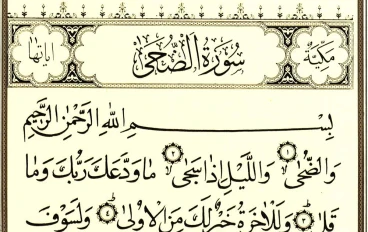 مكية سورة الضحى اياتها
بِسْمِ اللهِ الرَّحْمٰنِ الرَّحِيمِ
وَالضُّحٰى ١ وَاللَّيْلِ اِذَا سَجٰى ٢ مَا وَدَّعَكَ رَبُّكَ وَمَا
قَلٰى وَلَلْاٰخِرَةُ خَيْرٌ لَكَ مِنَ الْاُولٰى ٤ وَلَسَوْفَ